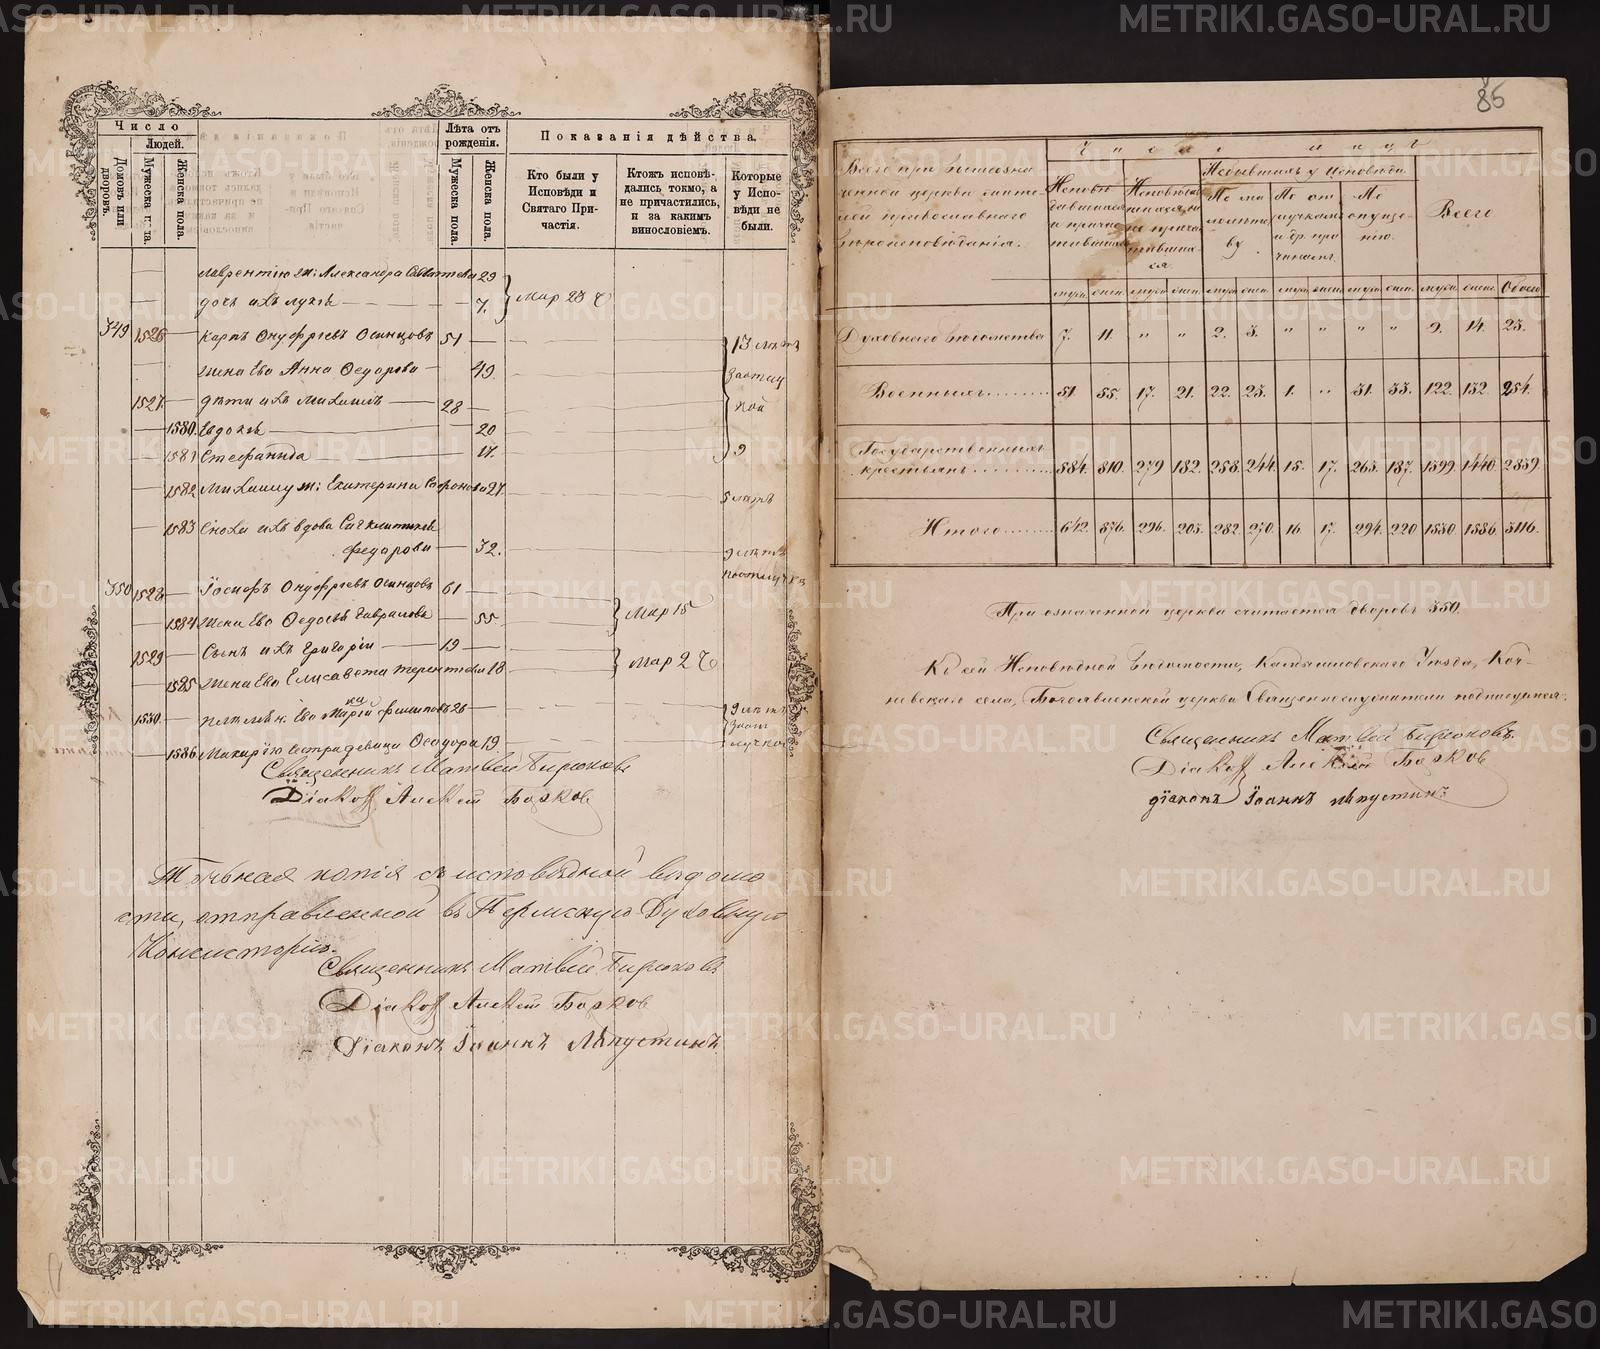 Число
Людей.
Домовъ или дворовъ.
Мужеска пола.
Женска пола.
Лѣта отъ рожденія.
Мужеска пола.
Женска пола.
Показанія дѣйства.
Кто были у Исповѣди и Святаго Причастія.
Ктожъ исповѣдались токмо, а не причастились, и за какимъ винословіемъ.
Которые у Исповѣди не были.
Лаврентію ж: Александра 29
дочь ихъ 7. Мар 23
349 1526 Карпъ Онуфріевъ Осинцовъ 51 13 лѣтъ
Жена Его Анна Федорова 49.
1527. дѣти ихъ Михаилъ 28
1580. Евдокія 20
1581 Стефанида 17.
1582 Михаилу ж: Екатерина 27
1583 Сноха ихъ вдова
Федорова 32.
350 1528 Іосифъ Онуфріевъ Осинцовъ 61
1584 Жена Его Федосья Гаврилова 55 Мар 15
1529 Сынъ ихъ Григорій 19
1585 Жена Его Елисавета Терентьева 18
1530 Его 26
1586 Макарію 19.
Священникъ Матвей Бирюковъ
Діаконъ Алексей Борковъ
Точьная копія съ исповѣдной вѣдомо
сти, отправленной въ Пермскую Духовную
Консисторію.
Священникъ Матвей Бирюковъ
Діаконъ Алексей Борковъ
Діаконъ Іоаннъ Лѣпустинъ
86
Число лицъ
Всего при вышеозначенной церкви жителей православнаго вѣроисповѣданія.
Небывшихъ у исповѣди.
По малолѣтству.
По отлучкамъ и др. причинамъ.
По опущенію.
Всего
Обоего
Духовнаго вѣдомства 7. 11. " " 2. 3. " " " " 9. 14. 23.
Военныхъ 51 55. 17. 21. 22. 23. 1. " 31. 33. 122. 132. 254.
Государственныхъ
крестьянъ 584. 810. 279 182. 258. 244. 15. 17. 263. 187. 1399. 1440. 2839
Итого 642. 876. 296. 203. 282. 270. 16. 17. 294. 220 1530. 1586. 3116.
При означенной церкви считается дворовъ 350.
Къ сей Исповѣдной Вѣдомости, Камышловскаго Уѣзда, Коч-
невскаго села, Богоявленской церкви Священнослужители подписуемся:
Священникъ Матвей Бирюковъ.
Діаконъ Алексей Борковъ
діаконъ Іоаннъ Лѣпустинъ
METRIKI.GASO-URAL.RU